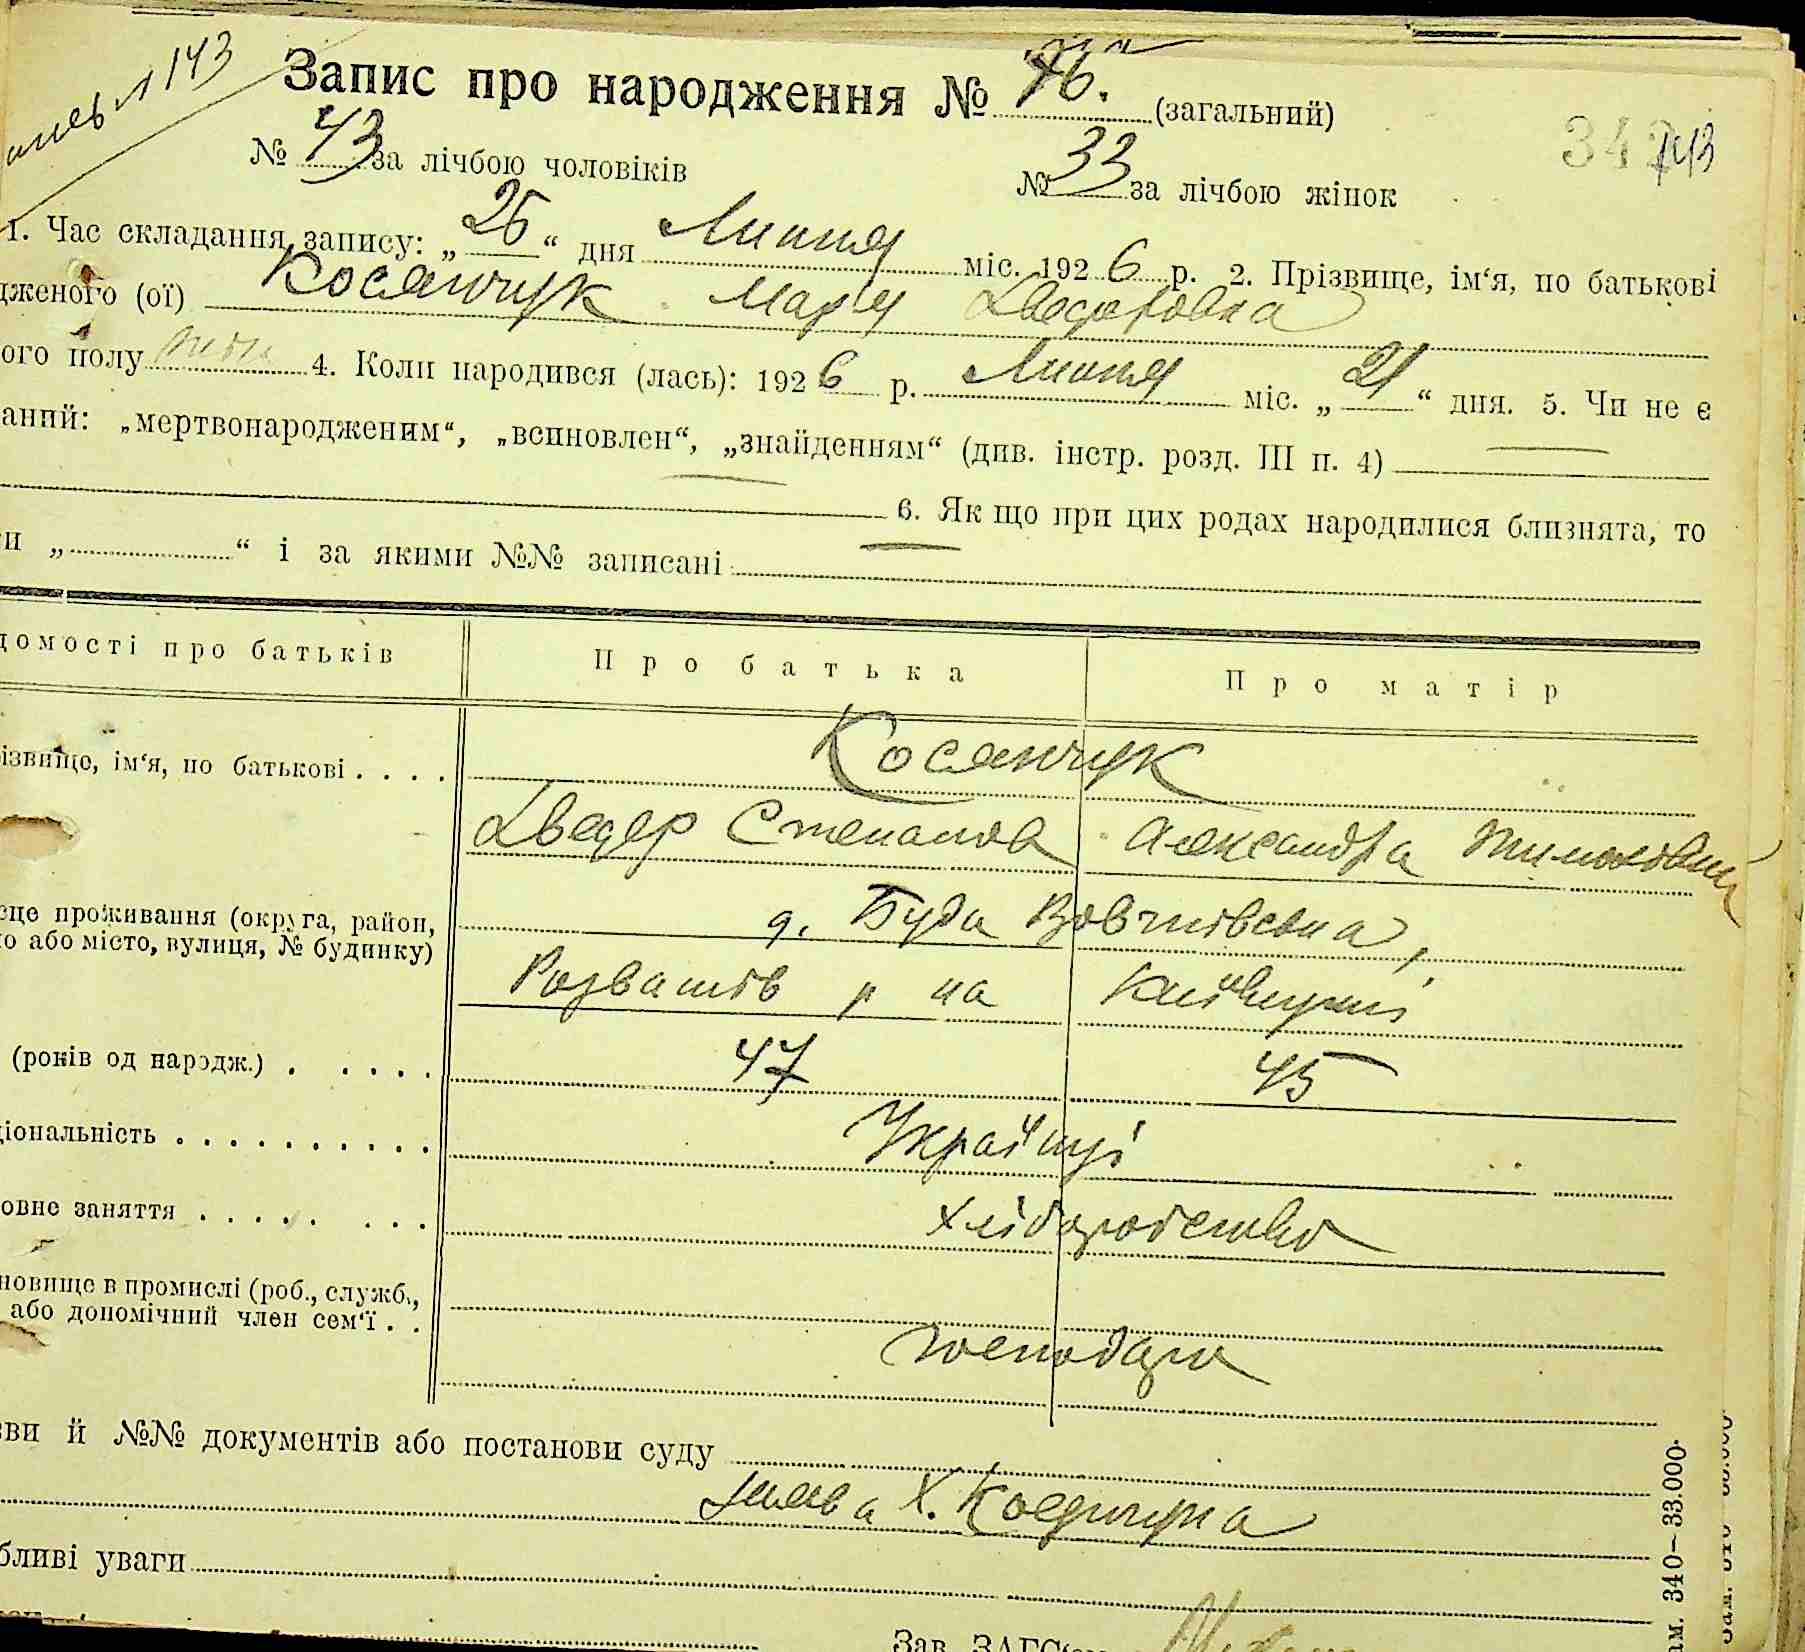 143
Запис про народження № 76. (загальний)
№ 43 за лічбою чоловіків № 33 за лічбою жінок
143
1. Час складання запису: „ 25 “ дня Липня міс. 192 6 р. 2. Прізвище, ім‘я, по батькові
дженого (ої) Косянчук Марія
ого полу жін 4. Коли народився (лась): 192 6 р. Липня міс. „ 21 “ дня. 5. Чи не є
аний: „мертвонародженим“, „всиновлен“, „знайденням“ (див. інстр. розд. III п. 4)
6. Якщо при цих родах народилися близнята, то
и „ “ і за якими №№ записані
домості про батьків Про батька Про матір
ізвище, ім‘я, по батькові . . . . Косянчук
Степанов Александра
сце проживання (округа, район, Буда Вовчківська,
о або місто, вулиця, № будинку)
Розважів р на Київщині
(років од народж.) . . . . . 47 45
ціональність . . . . . . . . . . . Українці
овне заняття . . . . . . . . хліборобство
новище в промислі (роб., служб.,
або допомічний член сем‘ї . . господари
зви й №№ документів або постанови суду
заява Х.
бливі уваги
Зав. ЗАГС‘ом
ам. 340—33.000.